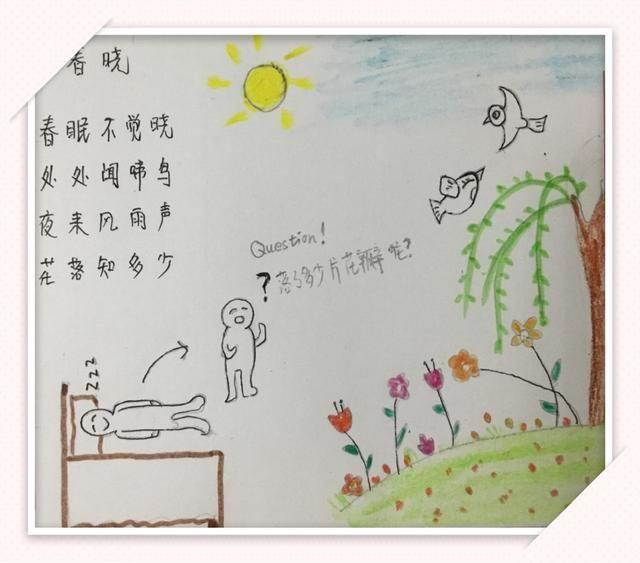 春晓
春眠不觉晓
处处闻啼鸟
夜来风雨声
花落知多少
Question!
? 落了多少片花瓣呢?
zzz